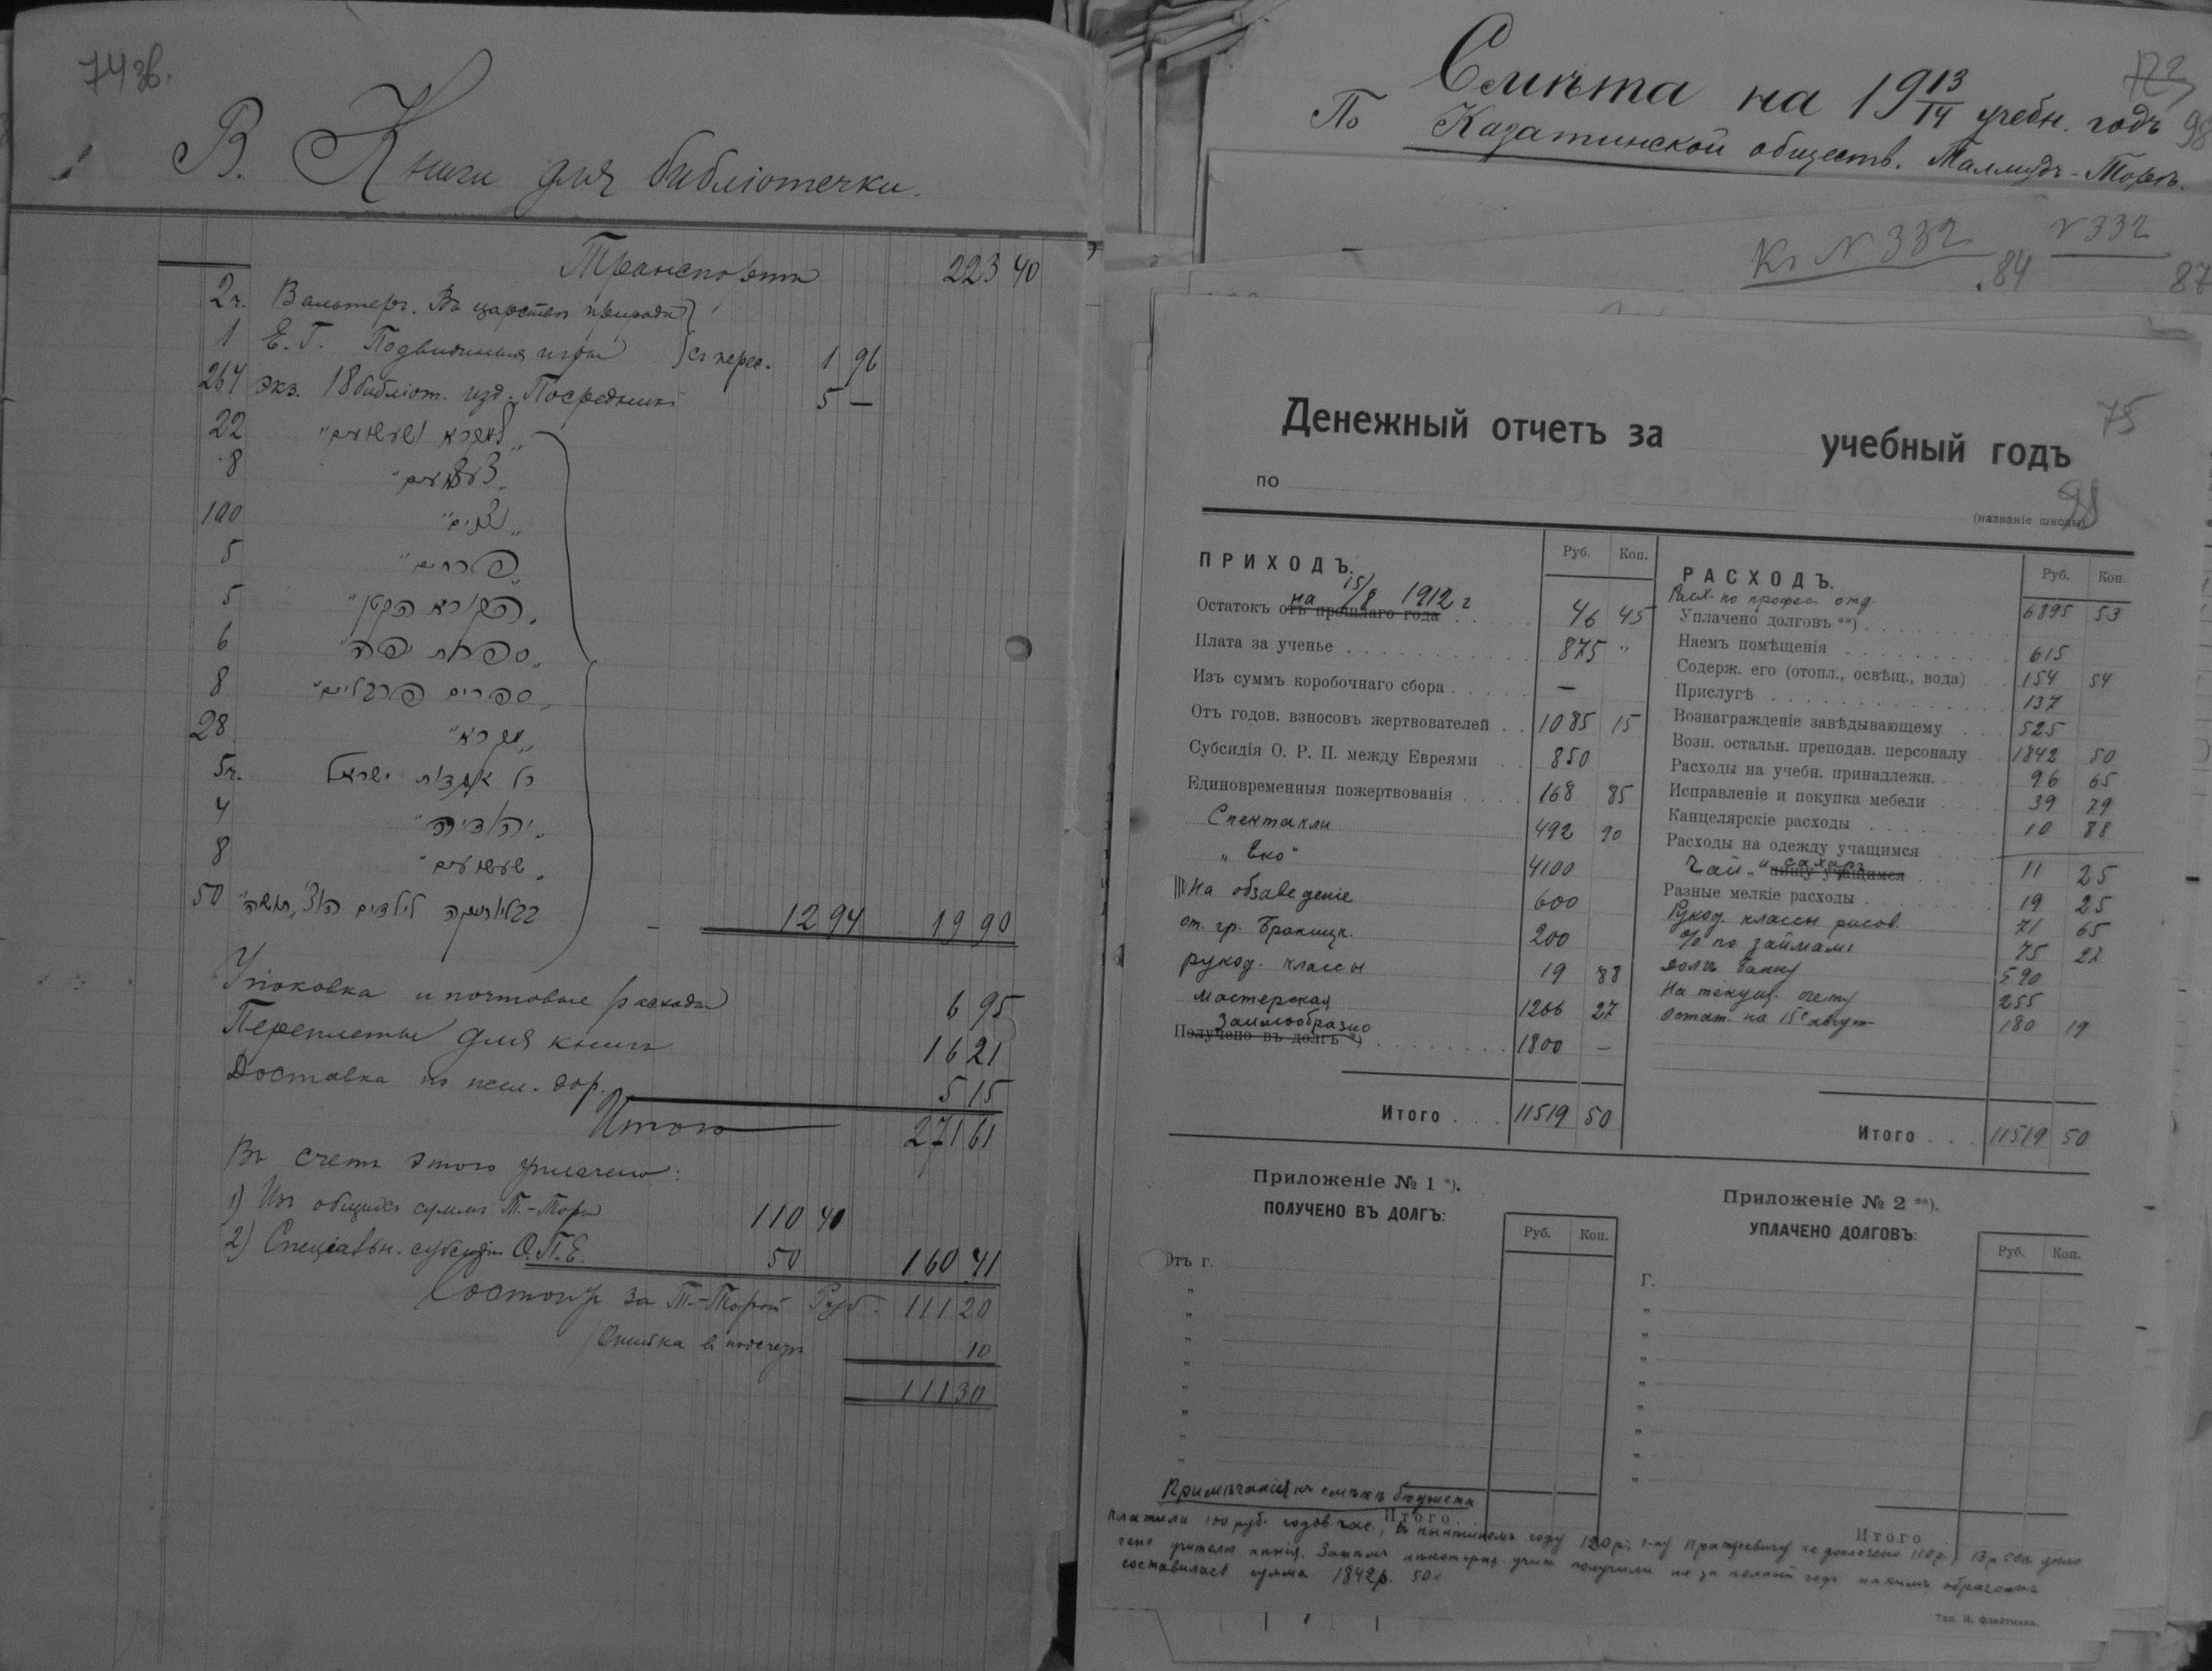 74 зв.
В. Книги для библіотечки.
Транспортъ 223 40
2 ч. Вальтеръ. Въ царствѣ природы
1 Е. Г. Подвижныя игры съ перес. 1 96
264 экз. 18 библіот. изд. Посредникъ 5 —
22
8
100
5 „פרחים“
5 „הקורא הקטן“
6 „ספרות יפה“
8
28 „מקרא“
5 ч. כל אגדות ישראל
4 „יהודיה“
8 „שעשועים“
50 ביבליותיקה לילדים הוצ׳
12 94 19 90
Упаковка и почтовые расходы 6 95
Переплеты для книгъ 16 21
Доставка по жел. дор. 5 15
Итого 271 61
Въ счетъ этого уплачено:
1) Изъ общихъ суммъ Т.-Торы 110 40
2) Спеціальн. субсидія О.П.Е. 50 160 41
Состоитъ за Т.-Торой Руб. 111 20
Ошибка въ подсчетѣ 10
111 30
Смѣта на 19 13/14 учебн. годъ
По Казатинской обществ. Талмудъ-Торѣ.
98
Къ № 332 № 332
84 87
75
Денежный отчетъ за учебный годъ
по
98
(названіе школы)
ПРИХОДЪ. Руб. Коп.
на 15/8 1912 г
Остатокъ отъ прошлаго года 46 45
Плата за ученье 875 "
Изъ суммъ коробочнаго сбора —
Отъ годов. взносовъ жертвователей 1085 15
Субсидія О. Р. П. между Евреями 850
Единовременныя пожертвованія 168 85
Спектакли 492 90
„Еко“ 4100
На обзаведеніе 600
от. гр.200
рукод. классы 19 88
мастерская 1266 27
Заимообразно
Получено въ долгъ *) 1800 —
Итого 11519 50
РАСХОДЪ. Руб. Коп.
Расх. по профес. отд. 6895 53
Уплачено долговъ **)
Наемъ помѣщенія 615
Содерж. его (отопл., освѣщ., вода) 154 54
Прислугѣ 137
Вознагражденіе завѣдывающему 525
Возн. остальн. преподав. персоналу 1842 50
Расходы на учебн. принадлежн. 96 65
Исправленіе и покупка мебели 39 79
Канцелярскіе расходы 10 88
Расходы на одежду учащимся
Чай и сахаръ
„ пищу учащимся 11 25
Разные мелкіе расходы 19 25
Рукод. классы рисов. 71 65
% по займамъ 75 22
долгъ банку 590
На текущ. счету 255
Остат. на 15е август 180 19
Итого 11519 50
Приложеніе № 1 *).
ПОЛУЧЕНО ВЪ ДОЛГЪ:
Руб. Коп.
Отъ г.
Приложеніе № 2 **).
УПЛАЧЕНО ДОЛГОВЪ:
Руб. Коп.
Г.
Примѣчанія къ смѣтѣ бюджета
Итого
Итого
платили 100 руб. годов. въ нынѣшнемъ году
учителю пѣнія. Затѣмъ получили не за полный годъ такимъ образомъ
составилась сумма 1842 р. 50 к.